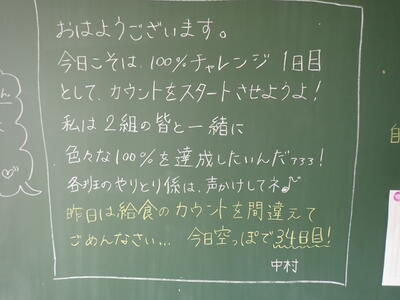 おはようございます。
今日こそは、100%チャレンジ1日目
として、カウントをスタートさせようよ!
私は2組の皆と一緒に
色々な100%を達成したいんだョョョ!
各班のやりとり係は、声かけしてネ♪
昨日は給食のカウントを間違えて
ごめんなさい… 今日空っぽで34日目!
中村